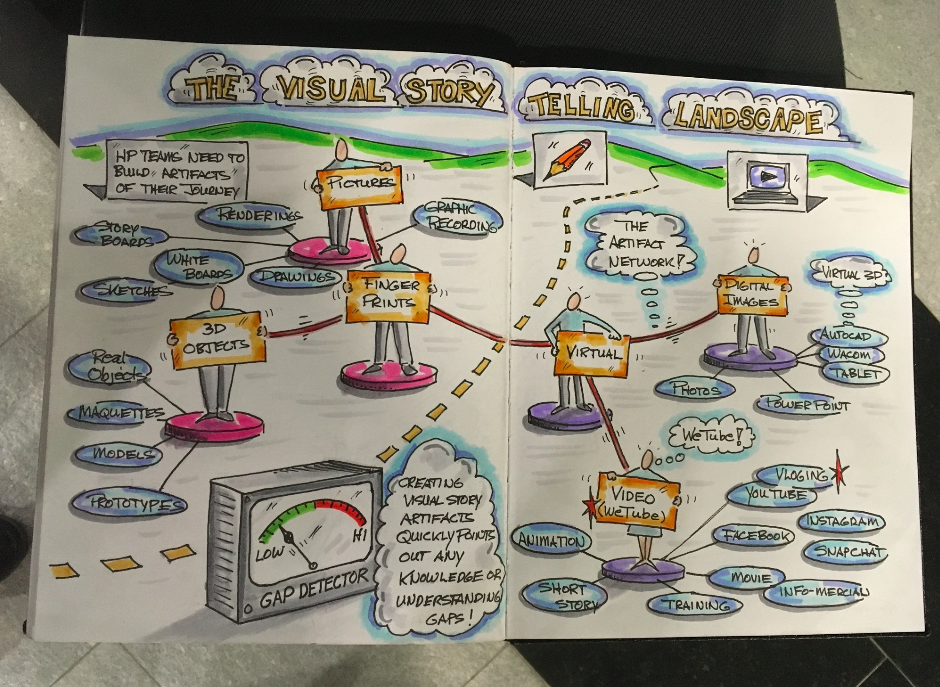 THE VISUAL STORY
TELLING LANDSCAPE
HP TEAMS NEED TO
BUILD ARTIFACTS
OF THEIR JOURNEY
PICTURES
RENDERINGS
GRAPHIC
RECORDING
STORY
BOARDS
WHITE
BOARDS
SKETCHES
DRAWINGS
FINGER
PRINTS
3D
OBJECTS
Real
Objects
MAQUETTES
MODELS
PROTOTYPES
LOW
HI
GAP DETECTOR
CREATING
VISUAL STORY
ARTIFACTS
QUICKLY POINTS
OUT ANY
KNOWLEDGE OR
UNDERSTANDING
GAPS!
THE
ARTIFACT
NETWORK!
VIRTUAL
DIGITAL
IMAGES
VIRTUAL 3D
AUTOCAD
WACOM
TABLET
PHOTOS
POWERPOINT
WeTube!
VIDEO
(WeTube)
VLOGING
YOUTUBE
INSTAGRAM
FACEBOOK
SNAPCHAT
ANIMATION
MOVIE
INFO-MERCIAL
SHORT
STORY
TRAINING